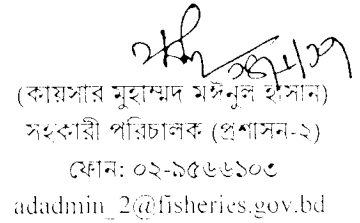 (কায়সার মুহাম্মদ মঈনুল হাসান)
সহকারী পরিচালক (প্রশাসন-২)
ফোন: ০২-৯৫৬৬১০৩
adadmin_2@fisheries.gov.bd